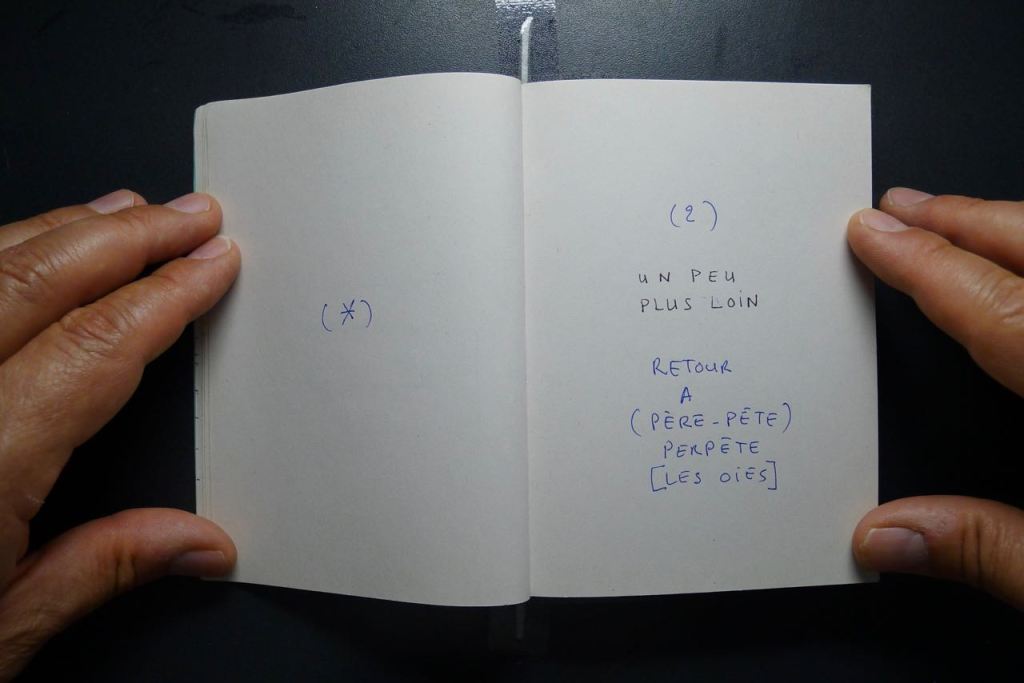 (*)
(2)
UN PEU
PLUS LOIN
RETOUR
A
(PÈRE-PÊTE)
PERPÊTE
[LES OIES]